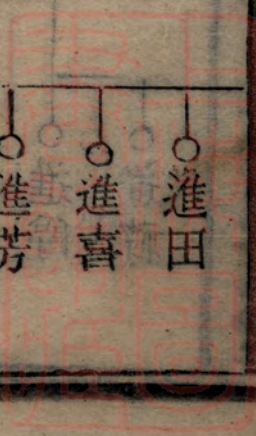 進田
進喜
進芳